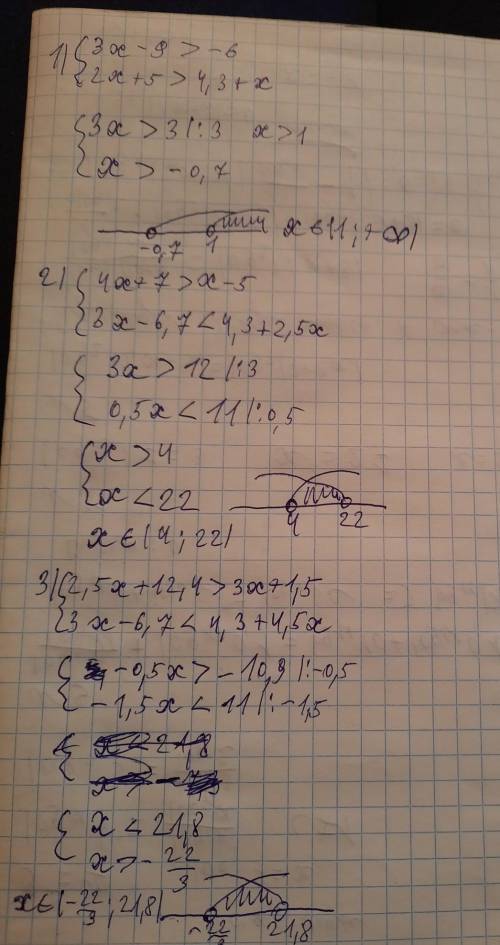 1) { 3x - 9 > -6
{ 2x + 5 > 4,3 + x
{ 3x > 3 |:3 x > 1
{ x > -0,7
-0,7 1 x ∈ (1 ; +∞)
2) { 4x + 7 > x - 5
{ 3x - 6,7 < 4,3 + 2,5x
{ 3x > 12 |:3
{ 0,5x < 11 |:0,5
{ x > 4
{ x < 22
4 22
x ∈ (4 ; 22)
3) { 2,5x + 12,4 > 3x + 1,5
{ 3x - 6,7 < 4,3 + 4,5x
{ -0,5x > -10,9 |:-0,5
{ -1,5x < 11 |:-1,5
{ x < 21,8
{ x > -22/3
x ∈ (-22/3 ; 21,8) -22/3 21,8